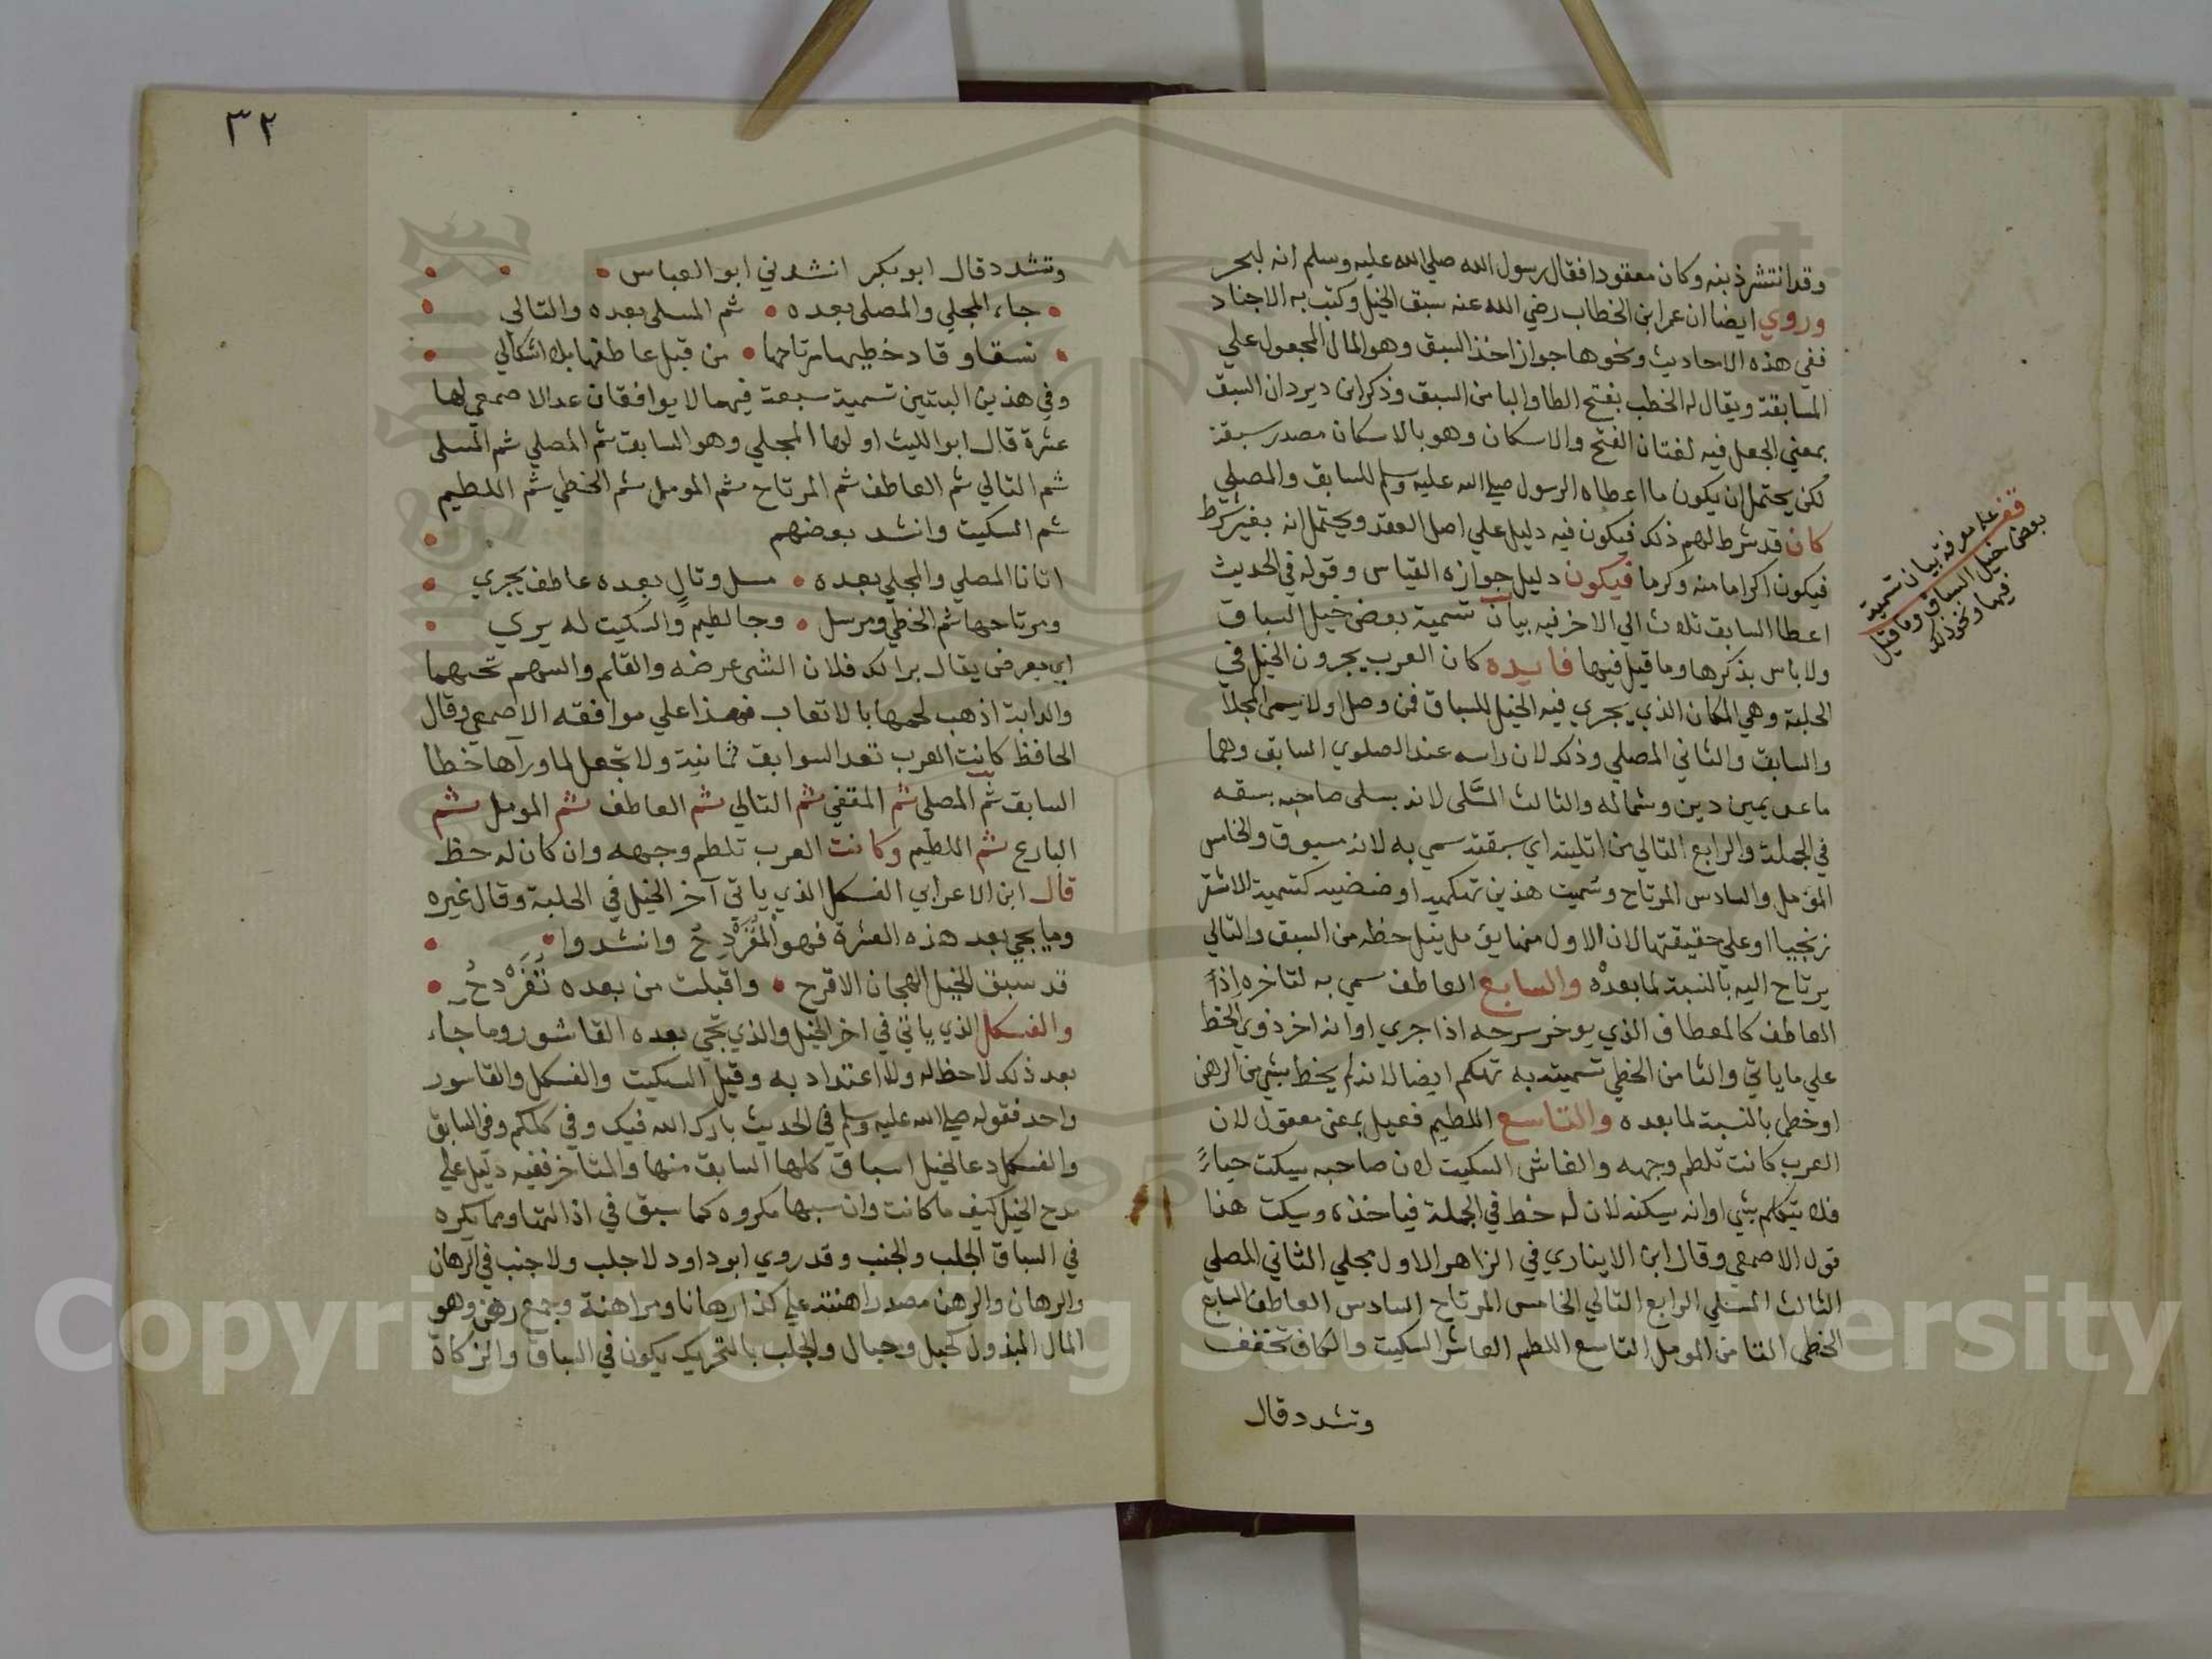 وقد انتشر ذنبه وكان معقودا فقال رسول الله صلي الله عليه وسلم انه لبحر
وروي ايضا ان عمر ابن الخطاب رضي الله عنه سبق الخيل وكتب به الاجناد
ففي هذه الاحاديث ونحوها جواز اخذ السبق وهو المال المجعول علي
المسابقة ويقال له الخطب بفتح الطا والبا من السبق وذكر ابن دير دان السبق
بمعني الجعل فيه لغتان الفتح والاسكان وهو بالاسكان مصدر سبقة
لكن يحتمل ان يكون ما اعطاه الرسول صلي الله عليه وسلم للسابق والمصلي
كان قد شرط لهم ذلك فيكون فيه دليل علي اصل العقد ويحتمل انه بغير شرط
فيكون اكراما منه وكرما فيكون دليل جوازه القياس وقوله في الحديث
اعطا السابق ثلاث الي الاخر فيه بيان تسمية بعض خيل السباق
ولا باس بذكرها وما قيل فيها فايده كان العرب يجرون الخيل في
الحلبة وهي المكان الذي يجري فيه الخيل للسباق فمن وصل اولا يسمي المجلا
والسابق والثاني المصلي وذلك لان راسه عند الصلوي السابق وهما
ما عن يمين دين وشماله والثالث المسلي لانه يسلي صاحبه بسقه
في الجملة والرابع التالي من اتليته اي سبقته سمي به لانه مسبوق والخامس
المؤمل والسادس المرتاح وسميت هذين تهكميه او ضضيه كتسمية الاشقر
زنجيا او علي حقيقتهما لان الاول منهما يؤمل ينيل حظه من السبق والتالي
يرتاح اليه بالنسبة لما بعده والسابع العاطف سمي به لتاخره اذا
العاطف كالمعطاف الذي يوخر سرجه اذا جري او انه اخر ذوي الخط
علي ما ياتي والثامن الخطي تسميته به تهكم ايضا لانه لم يخط بشي من الرهن
او خطي بالنسبة لما بعده والتاسع اللطيم فعيل بمعني معقول لان
العرب كانت تلطم وجهه والعاشر السكيت لان صاحبه سيكت حياءً
فلا يتكلم بشي او انه سيكنه لان له خط في الجملة فياخذه ويسكت هذا
قول الاصمعي وقال ابن الايناري في الزاهر الاول مجلي الثاني المصلي
الثالث المسلي الرابع التالي الخامس المرتاح السادس العاطف السابع
الخطي الثامن المومل التاسع اللطم العاشر السكيت والكاف تخفف
وتشدد قال
قف علي معرفة بيان تسمية
بعض خيل السباق وما قيل
فيها ونحو ذلك
٣٢
وتشدد قال ابو بكر انشدني ابو العباس
جاء المجلي والمصلي بعده • ثم المسلي بعده والتالي
نسقا وقاد خطيها مرتاحها • من قبل عاطفها بلا اشكالي
وفي هذين البيتين تسمية سبعة فيهما لا يوافقان عد الاصمعي لها
عشرة قال ابو الليث اولها المجلي وهو السابق ثم المصلي ثم المسلي
ثم التالي ثم العاطف ثم المرتاح ثم المومل ثم الخطي ثم اللطيم
ثم السكيت وانشد بعضهم
اتانا المصلي والمجلي بعده • مسل وتالٍ بعده عاطف يجري
ومرتاحها ثم الخطي ومرسل • وجا لطيم والسكيت له يبري
اي يعرض يقال برا لك فلان الشي عرضه والقلم والسهم نحتهما
والدابة اذهب لحمها بالاتعاب فهذا علي موافقه الاصمعي وقال
الحافظ كانت العرب تعد السوابق ثمانية ولا تجعل لما ورآها خطا
السابق ثم المصلي ثم المقفي ثم التالي ثم العاطف ثم المومل ثم
البارع ثم اللطيم وكانت العرب تلطم وجهه وان كان له حظ
قال ابن الاعرابي الفسكل الذي ياتي آخر الخيل في الحلبة وقال غيره
وما يجي بعد هذه العشرة فهو المُقَرْدِحُ وانشدوا
قد سبق الخيل الهجان الاقرح • واقبلت من بعده تُقَرْدِحُ
والفسكل الذي ياتي في اخر الخيل والذي يجي بعده القاشور وما جاء
بعد ذلك لا حظ له ولا اعتداد به وقيل السكيت والفسكل والقاسور
واحد فقوله صلي الله عليه وسلم في الحديث بارك الله فيك وفي كلكم وفي السابق
والفسكل دعا لخيل اسباق كلها السابق منها والمتاخر ففيه دليل علي
مدح الخيل كيف ما كانت وان سبها مكروه كما سبق في اذالتها ومما يكره
في السباق الجلب والجنب وقد روي ابو داود لا جلب ولا جنب في الرهان
والرهان والرهن مصدر راهنته علي كذا رهانا ومراهنة وجمع رهن وهو
المال المبذول كحبل وحبال والجلب بالتحريك يكون في السباق والزكاة
Copyright © King Saud University